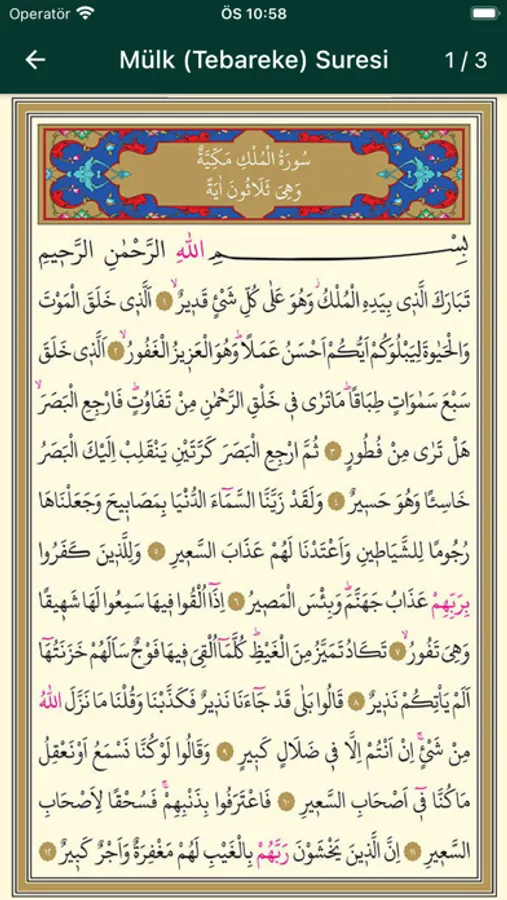 Operatör ÖS 10:58
Mülk (Tebareke) Suresi 1 / 3
سُورَةُ الْمُلْكِ مَكِّيَّةٌ
وَهِىَ ثَلَاثُونَ اٰيَةً
بِسْمِ اللّٰهِ الرَّحْمٰنِ الرَّح۪يمِ
تَبَارَكَ الَّذ۪ى بِيَدِهِ الْمُلْكُۘ وَهُوَ عَلٰى كُلِّ شَىْءٍ قَد۪يرٌۙ ﴿١﴾ اَلَّذ۪ى خَلَقَ الْمَوْتَ
وَالْحَيٰوةَ لِيَبْلُوَكُمْ اَيُّكُمْ اَحْسَنُ عَمَلًاۜ وَهُوَ الْعَز۪يزُ الْغَفُورُۙ ﴿٢﴾ اَلَّذ۪ى خَلَقَ
سَبْعَ سَمٰوَاتٍ طِبَاقًاۜ مَا تَرٰى ف۪ى خَلْقِ الرَّحْمٰنِ مِنْ تَفَاوُتٍۜ فَارْجِعِ الْبَصَرَۙ
هَلْ تَرٰى مِنْ فُطُورٍ ﴿٣﴾ ثُمَّ ارْجِعِ الْبَصَرَ كَرَّتَيْنِ يَنْقَلِبْ اِلَيْكَ الْبَصَرُ
خَاسِئًا وَهُوَ حَس۪يرٌ ﴿٤﴾ وَلَقَدْ زَيَّنَّا السَّمَٓاءَ الدُّنْيَا بِمَصَاب۪يحَ وَجَعَلْنَاهَا
رُجُومًا لِلشَّيَاط۪ينِ وَاَعْتَدْنَا لَهُمْ عَذَابَ السَّع۪يرِ ﴿٥﴾ وَلِلَّذ۪ينَ كَفَرُوا
بِرَبِّهِمْ عَذَابُ جَهَنَّمَۜ وَبِئْسَ الْمَص۪يرُ ﴿٦﴾ اِذَٓا اُلْقُوا ف۪يهَا سَمِعُوا لَهَا شَه۪يقًا
وَهِىَ تَفُورُۙ ﴿٧﴾ تَكَادُ تَمَيَّزُ مِنَ الْغَيْظِۜ كُلَّمَٓا اُلْقِىَ ف۪يهَا فَوْجٌ سَاَلَهُمْ خَزَنَتُهَٓا
اَلَمْ يَأْتِكُمْ نَذ۪يرٌ ﴿٨﴾ قَالُوا بَلٰى قَدْ جَٓاءَنَا نَذ۪يرٌ فَكَذَّبْنَا وَقُلْنَا مَا نَزَّلَ اللّٰهُ
مِنْ شَىْءٍۚ اِنْ اَنْتُمْ اِلَّا ف۪ى ضَلَالٍ كَب۪يرٍ ﴿٩﴾ وَقَالُوا لَوْ كُنَّا نَسْمَعُ اَوْ نَعْقِلُ
مَا كُنَّا ف۪ٓى اَصْحَابِ السَّع۪يرِ ﴿١٠﴾ فَاعْتَرَفُوا بِذَنْبِهِمْۚ فَسُحْقًا لِاَصْحَابِ
السَّع۪يرِ ﴿١١﴾ اِنَّ الَّذ۪ينَ يَخْشَوْنَ رَبَّهُمْ بِالْغَيْبِ لَهُمْ مَغْفِرَةٌ وَاَجْرٌ كَب۪يرٌ ﴿١٢﴾